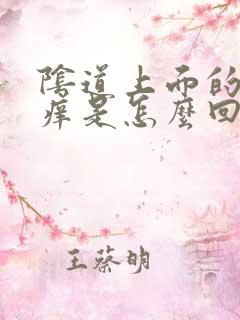 陰道上面的
痒是怎麼回
王蔡明